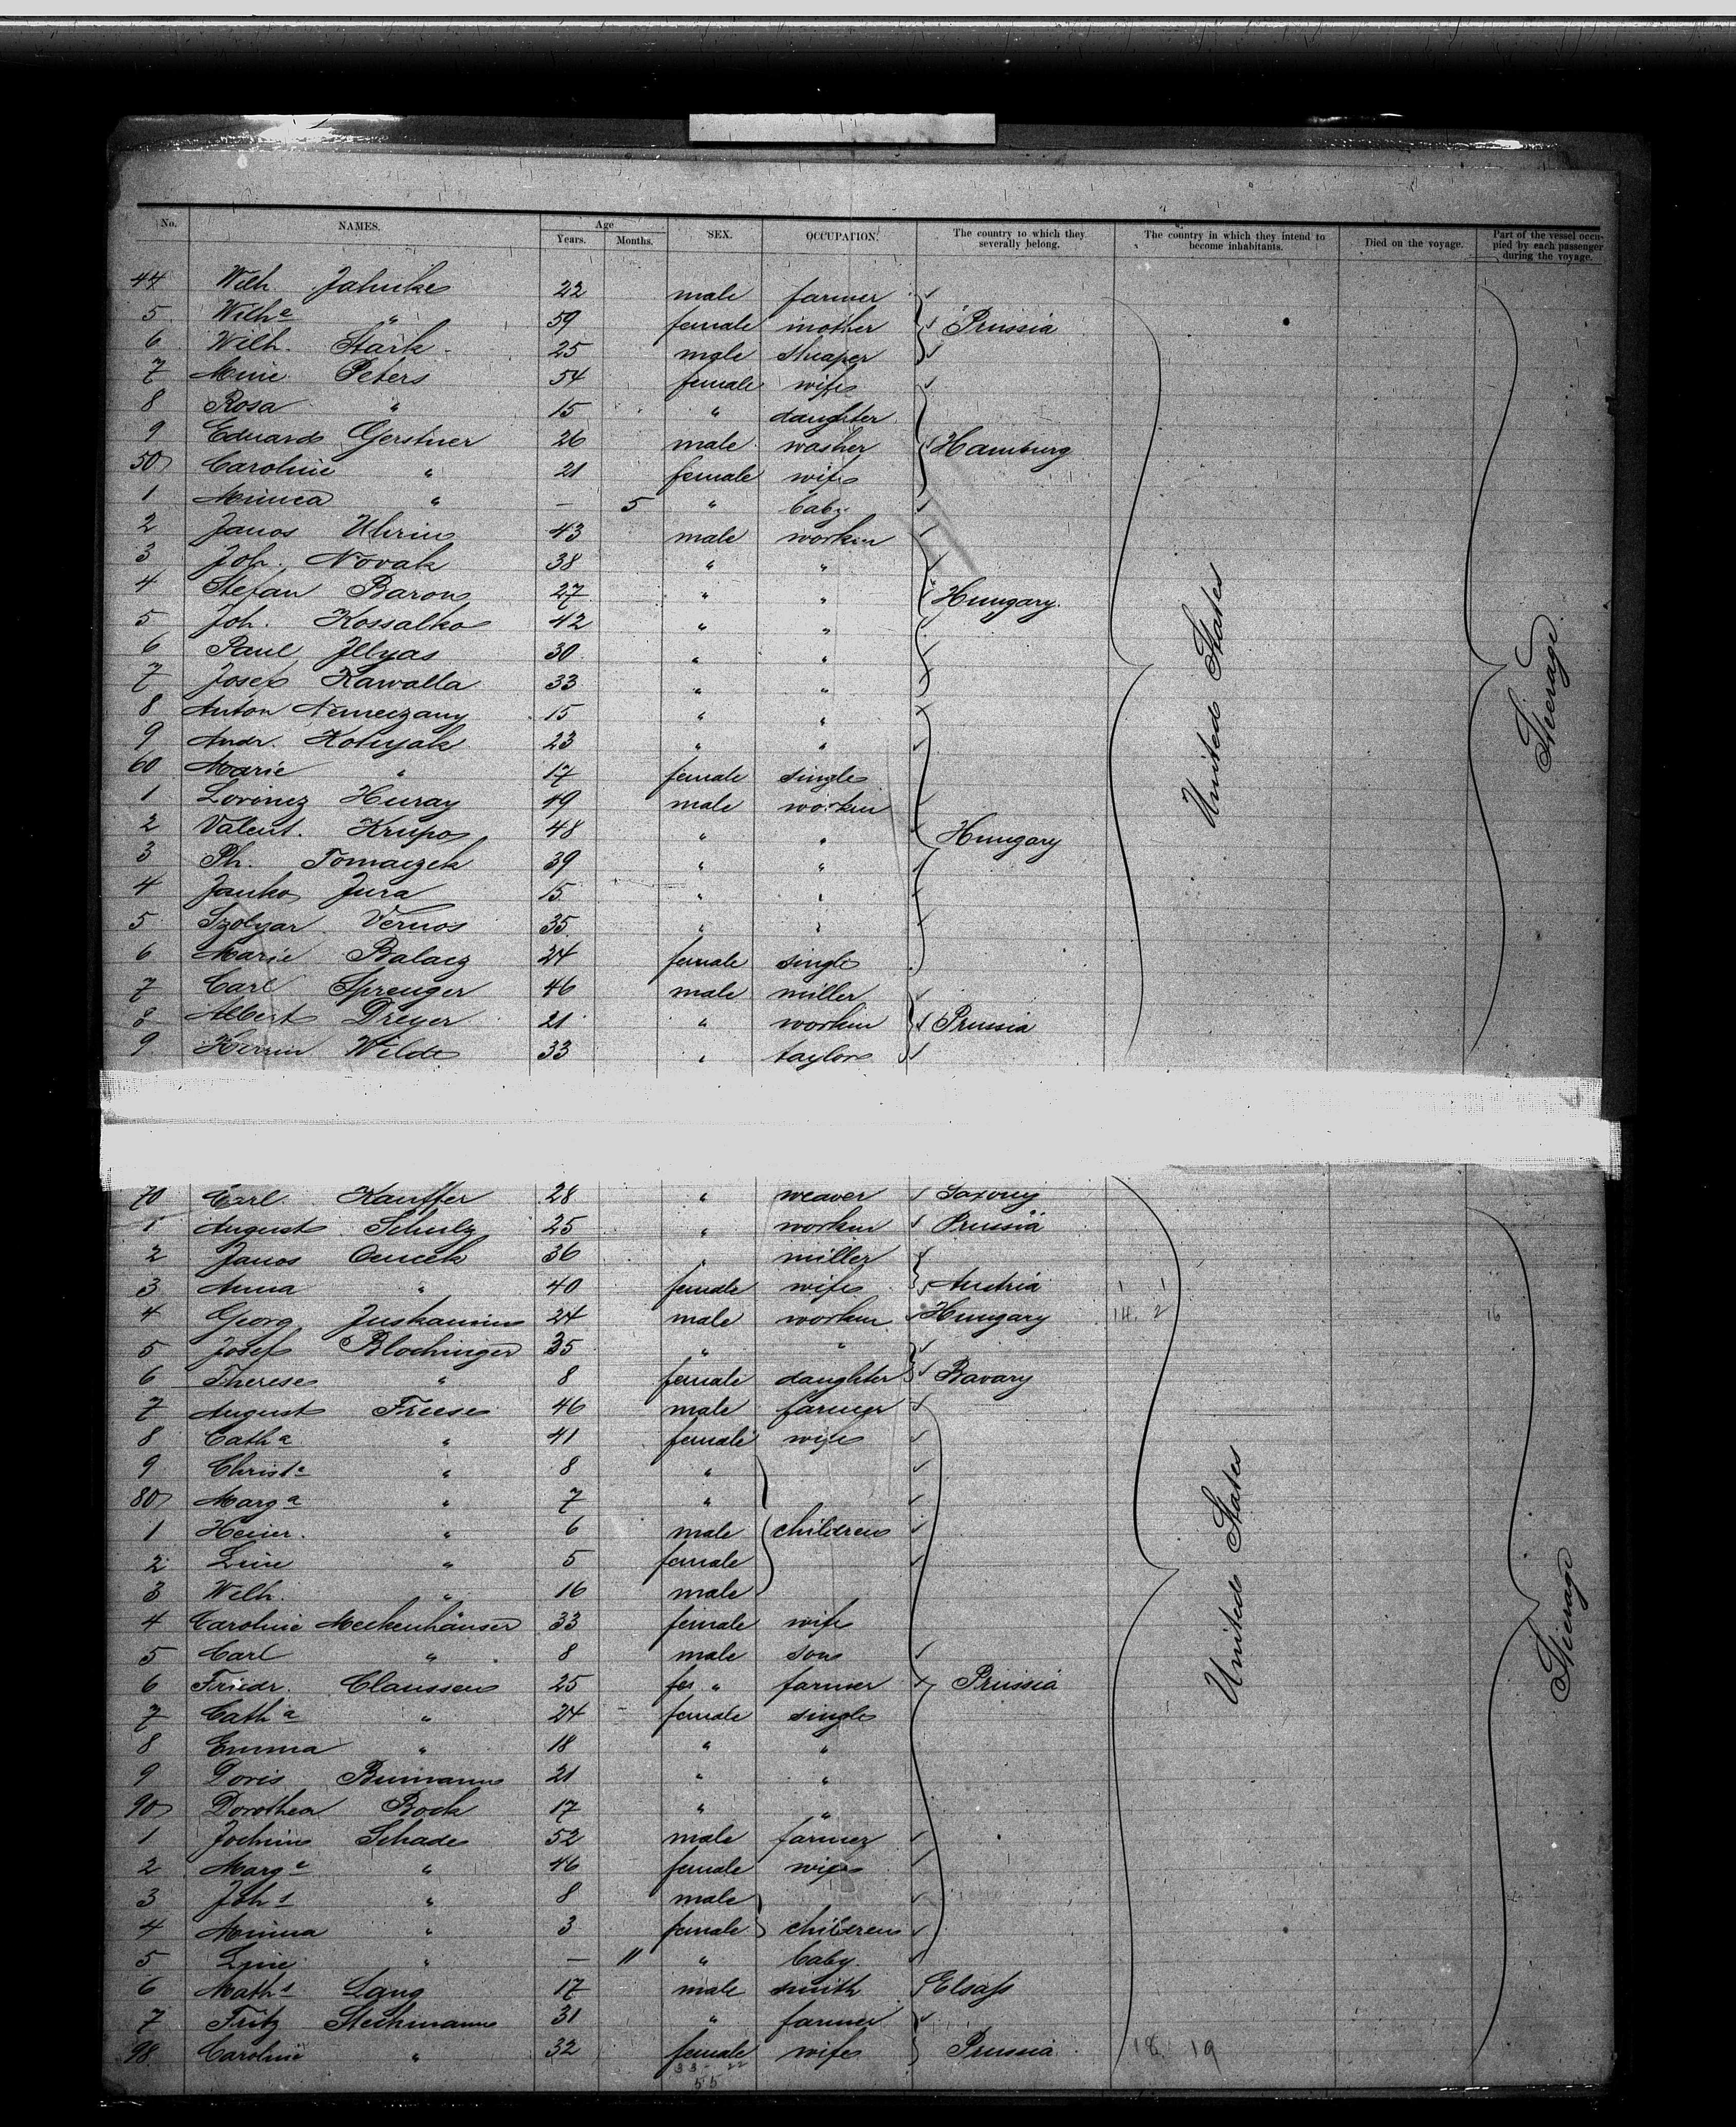 No. NAMES. Age Years. Months. SEX. OCCUPATION. The country to which they severally belong. The country in which they intend to become inhabitants. Died on the voyage. Part of the vessel occupied by each passenger during the voyage.
44 Wilh. Jahnke 22 male farmer
5 Wilhe " 59 female mother Prussia
6 Wilh. Stark 25 male
7 Mine Peters 54 female wife
8 Rosa " 15 " daughter
9 Eduard Gerstner 26 male washer Hamburg
50 Caroline " 21 female wife
1 Minna " — 5 " baby
2 Janos Uhrin 43 male worker
3 Joh. Novak 38 " "
4 Stefan Baron 27 " " Hungary.
5 Joh. Kossalko 42 " "
6 Paul Illyas 30 " "
7 Josef Kawalla 33 " "
8 Anton Nemeczany 15 " "
9 Andr. Kotnyak 23 " "
60 Marie " 17 female single
1 Lorincz Huray 49 male worker
2 Valent. Krupo 48 " " Hungary
3 Ph. Tomaczek 39 " "
4 Janko Jura 15 " "
5 Szolyar Vernos 35 " "
6 Marie Balacz 24 female single
7 Carl Sprenger 46 male miller
8 Albert Dreyer 21 " worker Prussia
9 Herm Wilde 33 " taylor
United States
Steerage
70 Carl Kauffer 28 " weaver Saxony
1 August Schulz 25 " worker Prussia
2 Janos Cencek 36 " miller
3 Anna " 40 female wife Austria 1 1
4 Georg 24 male worker Hungary 14. 2 16
5 Josef Blochinger 35 " "
6 Therese " 8 female daughter Bavary
7 August Friese 46 male farmer
8 Catha " 41 female wife
9 Christa " 8 "
80 Marga " 7 "
1 Heinr. " 6 male children
2 Line " 5 female
3 Wilh. " 16 male
4 Caroline Meckenhäuser 33 female wife
5 Carl " 8 male son
6 Friedr. Claussen 25 " farmer Prussia
7 Catha " 24 female single
8 Emma " 18 " "
9 Doris Bumann 21 " "
90 Dorothea Bock 17 " "
1 Jochim Schade 52 male farmer
2 Marga " 46 female wife
3 Johs " 8 male
4 Minna " 3 female children
5 Line " — 11 " baby
6 Maths Lang 17 male smith Elsaß
7 Fritz Steckmann 31 " farmer
98 Caroline " 32 female wife Prussia 18 19
33 22
55
United States
Steerage